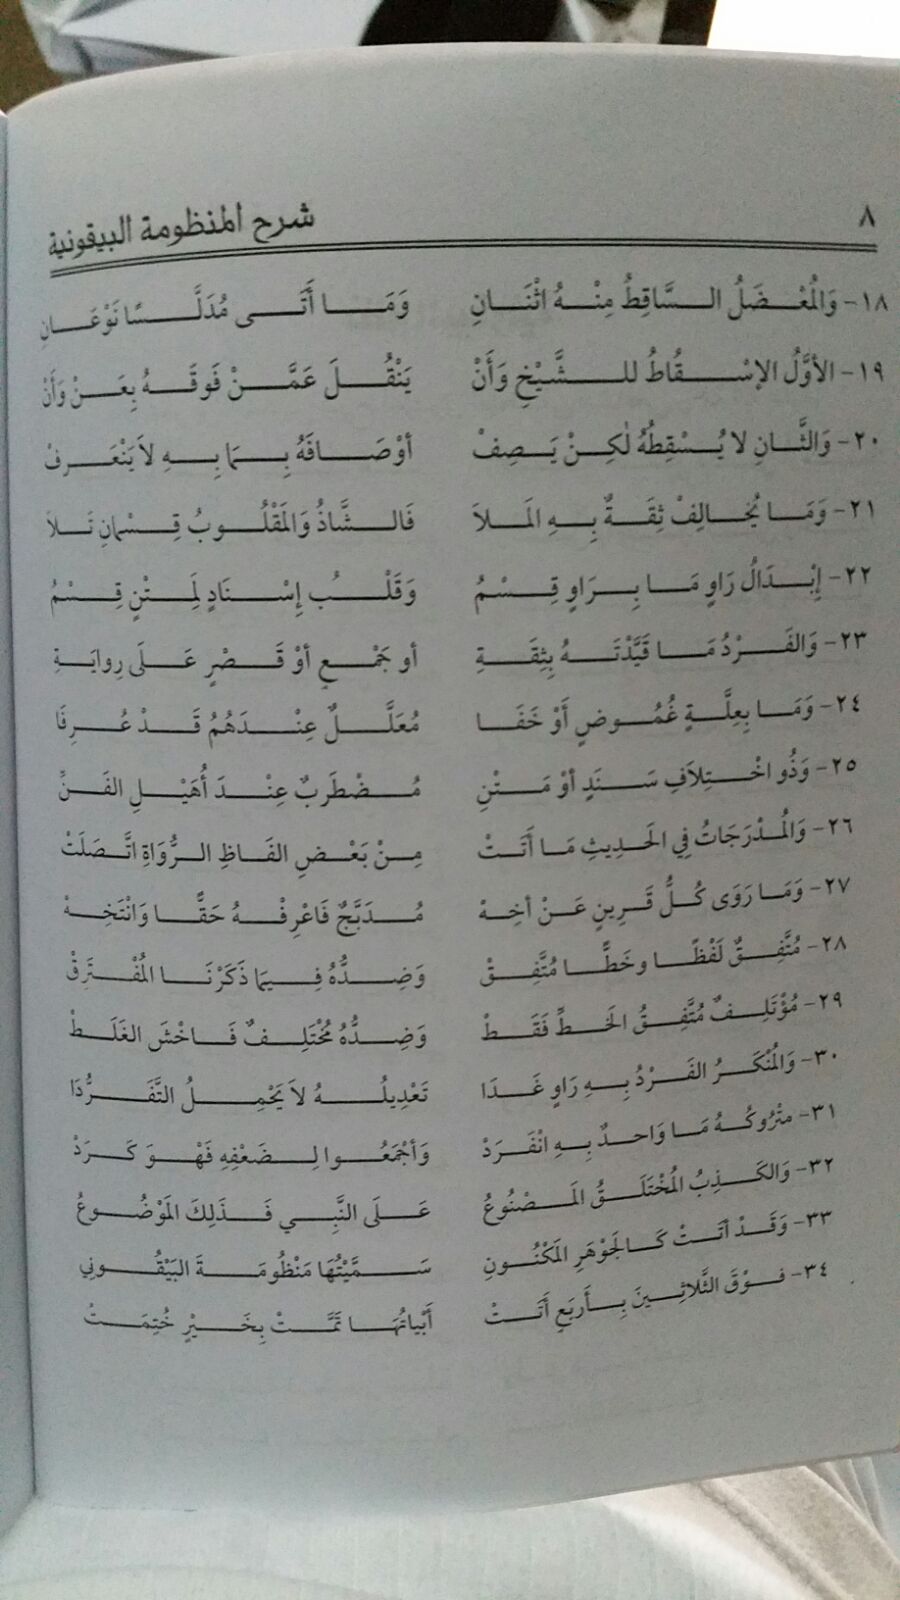 ٨ شرح المنظومة البيقونية
١٨- وَالْمُعْضَلُ السَّاقِطُ مِنْهُ اثْنَانِ وَمَا أَتَى مُدَلَّسًا نَوْعَانِ
١٩- الأوَّلُ الإسْقَاطُ للشَّيْخِ وَأَنْ يَنْقُلَ عَمَّنْ فَوقَهُ بِعَنْ وَأَنْ
٢٠- وَالثَّانِ لا يُسْقِطُهُ لٰكِنْ يَصِفْ أوْصَافَهُ بِمَا بِهِ لاَ يَنْعَرفْ
٢١- وَمَا يُخَالِفْ ثِقَةٌ بِهِ المَلاَ فَالشَّاذُ وَالمَقْلُوبُ قِسْمانِ تَلاَ
٢٢- إبْدَالُ رَاوٍ مَا بِرَاوٍ قِسْمُ وَقَلْبُ إسْنَادٍ لِمَتْنٍ قِسْمُ
٢٣- وَالفَرْدُ مَا قَيَّدْتَهُ بِثِقَةِ أو جَمْعٍ أوْ قَصْرٍ عَلَى رِوايَةِ
٢٤- وَمَا بِعِلَّةٍ غُمُوضٍ أوْ خَفَا مُعَلَّلٌ عِنْدَهُمُ قَدْ عُرِفَا
٢٥- وَذُو اخْتِلاَفِ سَنَدٍ أوْ مَتْنِ مُضْطَربٌ عِنْدَ أُهَيْلِ الفَنِّ
٢٦- وَالمُدْرَجَاتُ فِي الحَدِيثِ مَا أَتَتْ مِنْ بَعْضِ الفَاظِ الرُّوَاةِ اتَّصَلَتْ
٢٧- وَمَا رَوَى كُلُّ قَرِينٍ عَنْ أخِهْ مُدَبَّجٌ فَاعْرِفْهُ حَقًّا وَانْتَخِهْ
٢٨- مُتَّفِقٌ لَفْظًا وخَطًّا مُتَّفِقْ وَضِدُّهُ فِيمَا ذَكَرْنَا المُفْتَرِقْ
٢٩- مُؤْتَلِفٌ مُتَّفِقُ الخَطِّ فَقَطْ وَضِدُّهُ مُخْتَلِفٌ فَاخْشَ الغَلَطْ
٣٠- وَالمُنْكَرُ الفَرْدُ بِهِ رَاوٍ غَدَا تَعْدِيلُهُ لاَ يَحْمِلُ التَّفَرُّدَا
٣١- متْرُوكُهُ مَا وَاحدٌ بِهِ انْفَرَدْ وَأجْمَعُوا لِضَعْفِهِ فَهْوَ كَرَدْ
٣٢- وَالكَذِبُ المُخْتَلَقُ المَصْنُوعُ عَلَى النَّبِي فَذَلِكَ المَوْضُوعُ
٣٣- وَقَدْ أتَتْ كَالجَوْهَرِ المَكْنُونِ سَمَّيْتُهَا مَنْظُومَةَ البَيْقُونِي
٣٤- فوْقَ الثَّلاثِينَ بِأَربَعٍ أتَتْ أَبْياتُهَا تَمَّتْ بِخَيْرٍ خُتِمَتْ